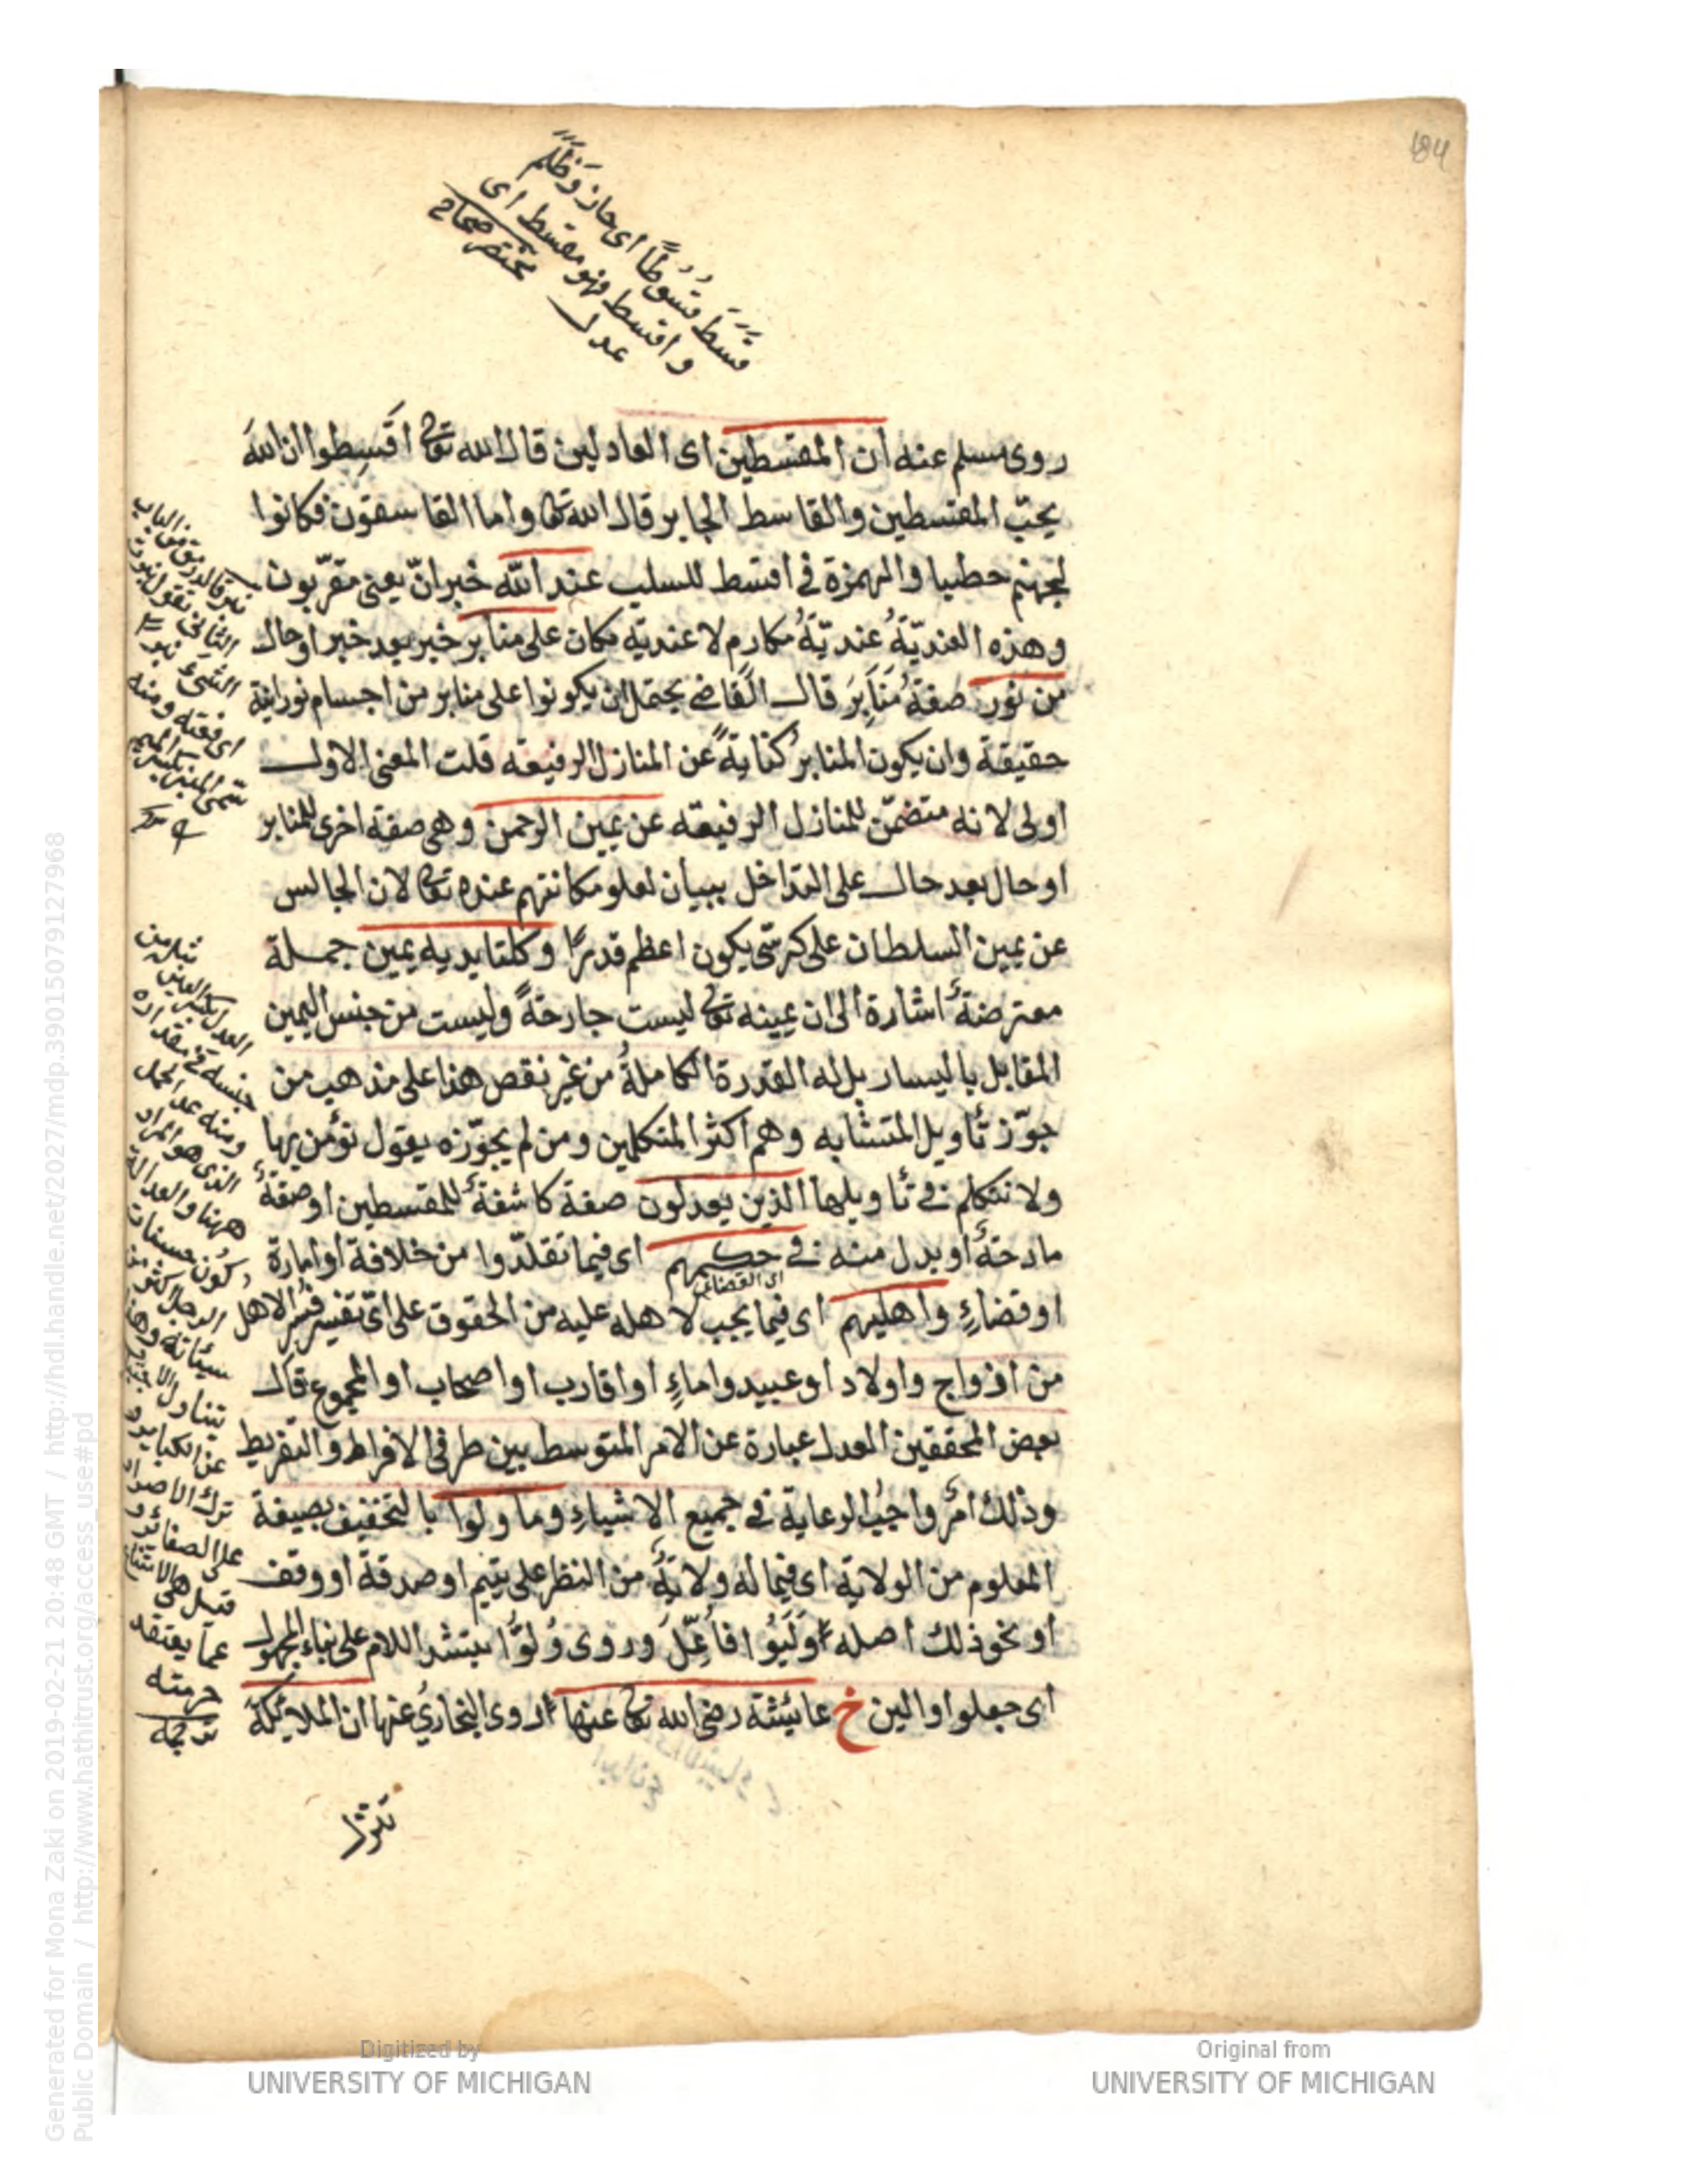 184
قَسَطَ قُسُوطًا اى جار وَظَلَم
واقسط فهو مقسط اى
عدل مختصر صحاح
روى مسلم عنه ان المقسطين اى العادلين قال الله تعالى اقسِطوا ان الله
يحبّ المقسطين والقاسط الجاير قال الله تعالى واما القاسقون فكانوا
لجهنم حطبا والهمزة فى اقسط للسلب عند الله خبر انّ يعنى مقرّبون
وهذه العنديّةُ عنديّةُ مكارم لا عنديّه مكان على منابر خبر بعد خبر او حال
من نور صفةُ مَنَابِرَ قال القاضى يحتمل ان يكونوا على منابر من اجسام نورانية
حقيقة وان يكون المنابر كناية عن المنازل الرفيعه قلت المعنى الاول
اولى لانه متضمّن للمنازل الرفيعه عن يمين الرحمن وهى صفة اخرى للمنابر
او حال بعد حال على التداخل ببيان لعلو مكانتهم عنده تعالى لان الجالس
عن يمين السلطان على كرسّى يكون اعظم قدرًا وكلتا يديه يمين جملة
معترضة اشارة الى ان يمينه تعالى ليست جارحةً وليست من جنس اليمين
المقابل باليسار بل له القدرة الكاملةُ من غير نقص هذا على مذهب من
جوّز تأويل المتشابه وهم اكثر المتكلمين ومن لم يجوّزه يقول نؤمن بها
ولا نتكلم فى تأويلها الذين يعدلون صفة كاشفة للمقسطين او صفة
مادحة او بدل منه فى حكمهم اى فيما تقلّدوا من خلافة او امارة
اى القضاء
او قضاءٍ واهليهم اى فيما يجب لاهله عليه من الحقوق على اىّ تفسير فُسّر الاهل
من ازواج واولاد او عبيد واماءٍ او اقارب او اصحاب او المجموع قال
بعض المحققين العدل عبارة عن الامر المتوسط بين طرفى الافراط والتفريط
وذلك امر واجب الرعاية فى جميع الاشياءِ وما ولوا بالتخفيف بصيغة
المعلوم من الولاية اى فيما له ولاية من النظر على يتيم او صدقة او وقف
او نحو ذلك اصله وَلَيُوا فاُعِلّ وروى وُلوّا بتشد اللام على بناء المجهول
اى جعلوا والين خ عايشة رضى الله تعالى عنها روى البخارىُ عنها ان الملائكة
تنزل
نبر قال من الباب
الثانى تقول نبرت
الشئ نبرا
اى رفعته ومنه
سمى المنبر بكسر الميم
مثل من
العدل بكسر العين
جنسه فى مقداره
ومنه عدل الحمل
الذى هو المراد
ههنا والعدالة
كون حسنات
الرجل اكثر من
سيئاته وهذا
يتناول الاجتناب
عن الكباير و
ترك الاصرار
على الصغائر و
قيل هى الامتناع
عما يعتقد
حرمته
Generated for Mona Zaki on 2019-02-21 20:48 GMT / http://hdl.handle.net/2027/mdp.39015079127968
Public Domain / http://www.hathitrust.org/access_use#pd
Digitized by
UNIVERSITY OF MICHIGAN
Original from
UNIVERSITY OF MICHIGAN